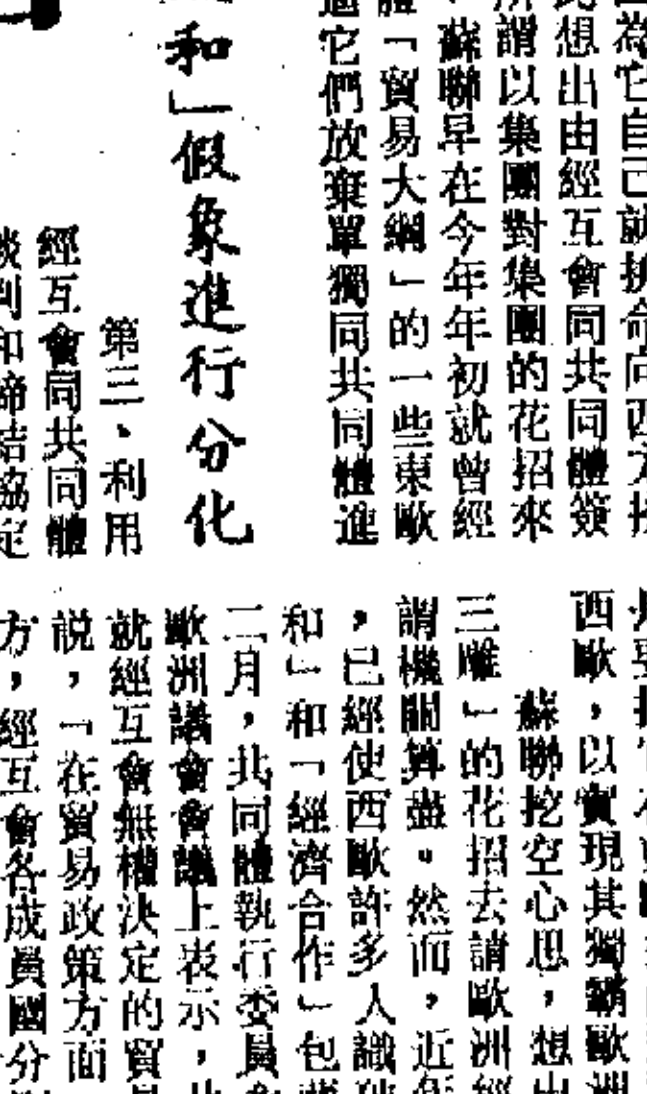 為它自己就拚命向西方
想出由經互會同共同體簽
所謂以集團對集團的花招來
蘇聯早在今年年初就曾經
體「貿易大綱」的一些東歐
它們放棄單獨同共同體進
和」假象進行分化
第三、利用
經互會同共同體
談判和締結協定
西歐，以實現其獨霸歐洲
蘇聯挖空心思，想出
三雕」的花招去請歐洲經
謂機關算盡。然而，近年
，已經使西歐許多人識破
和」和「經濟合作」包藏
二月，共同體執行委員會
歐洲議會會議上表示，
就經互會無權決定的貿
説，「在貿易政策方面
方，經互會各成員國分